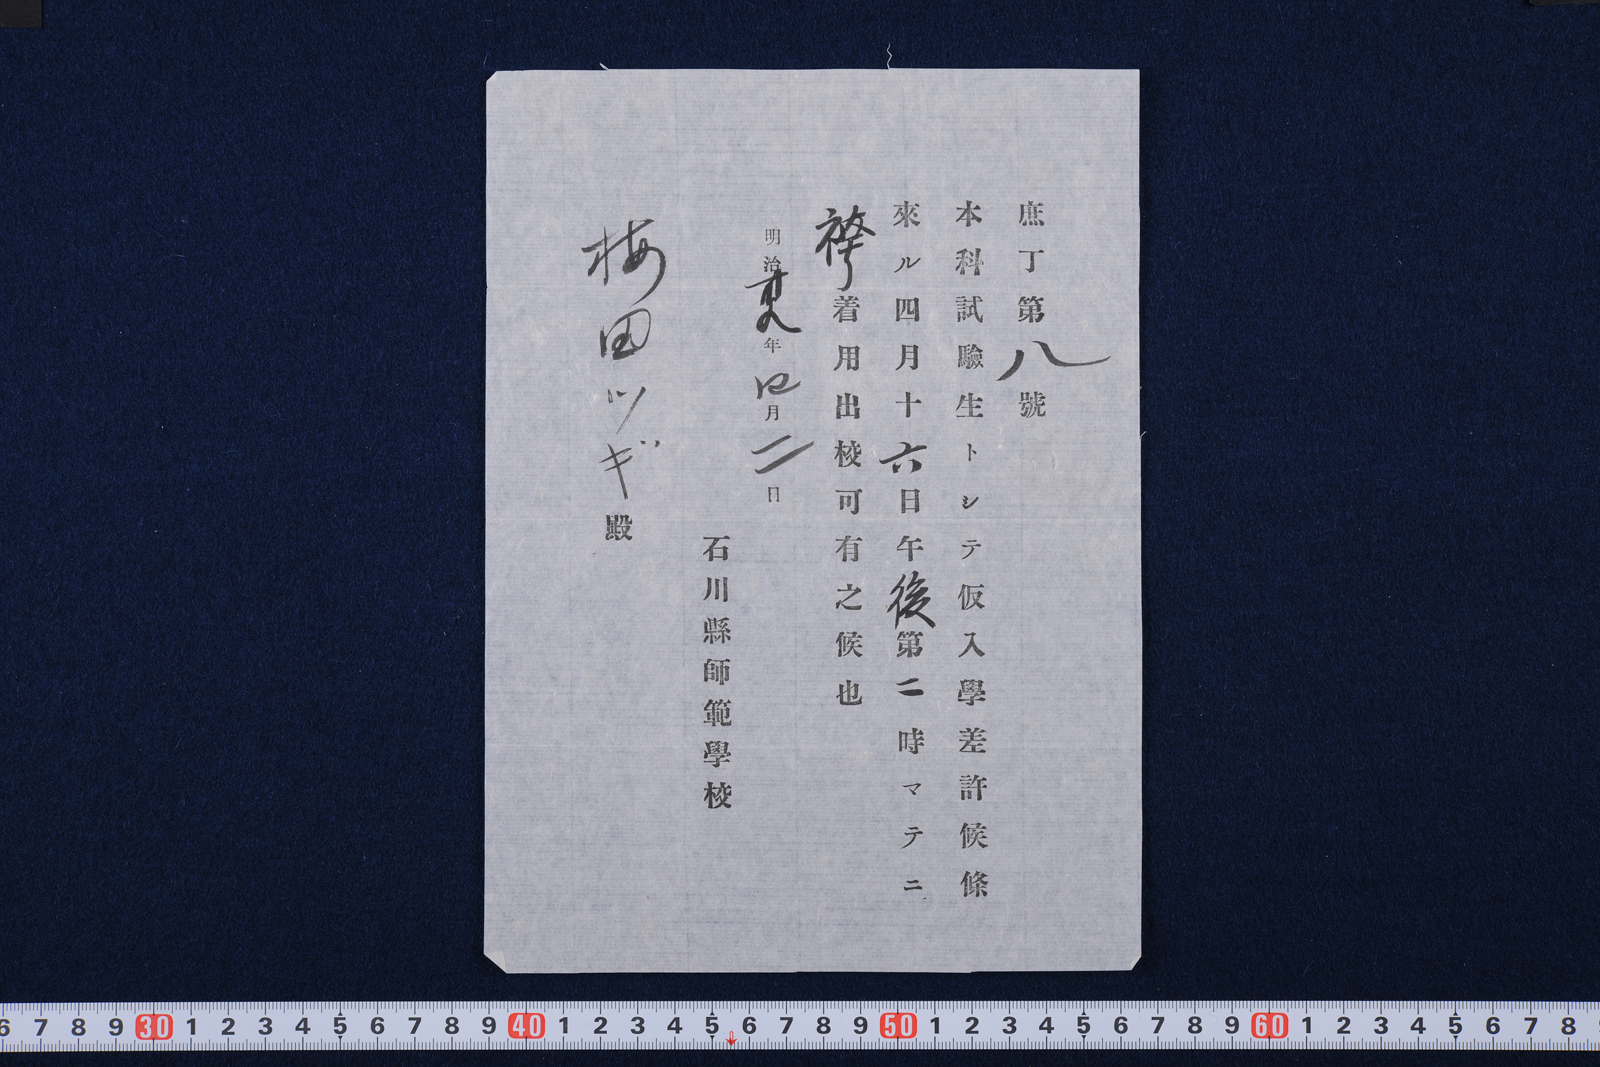 庶丁第八號
本科試驗生トシテ仮入學差許候條
來ル四月十六日午後第二時マテニ
袴着用出校可有之候也
明治年四月二日
石川縣師範學校
梅田ツギ殿
6 7 8 9 30 1 2 3 4 5 6 7 8 9 40 1 2 3 4 5 6 7 8 9 50 1 2 3 4 5 6 7 8 9 60 1 2 3 4 5 6 7 8